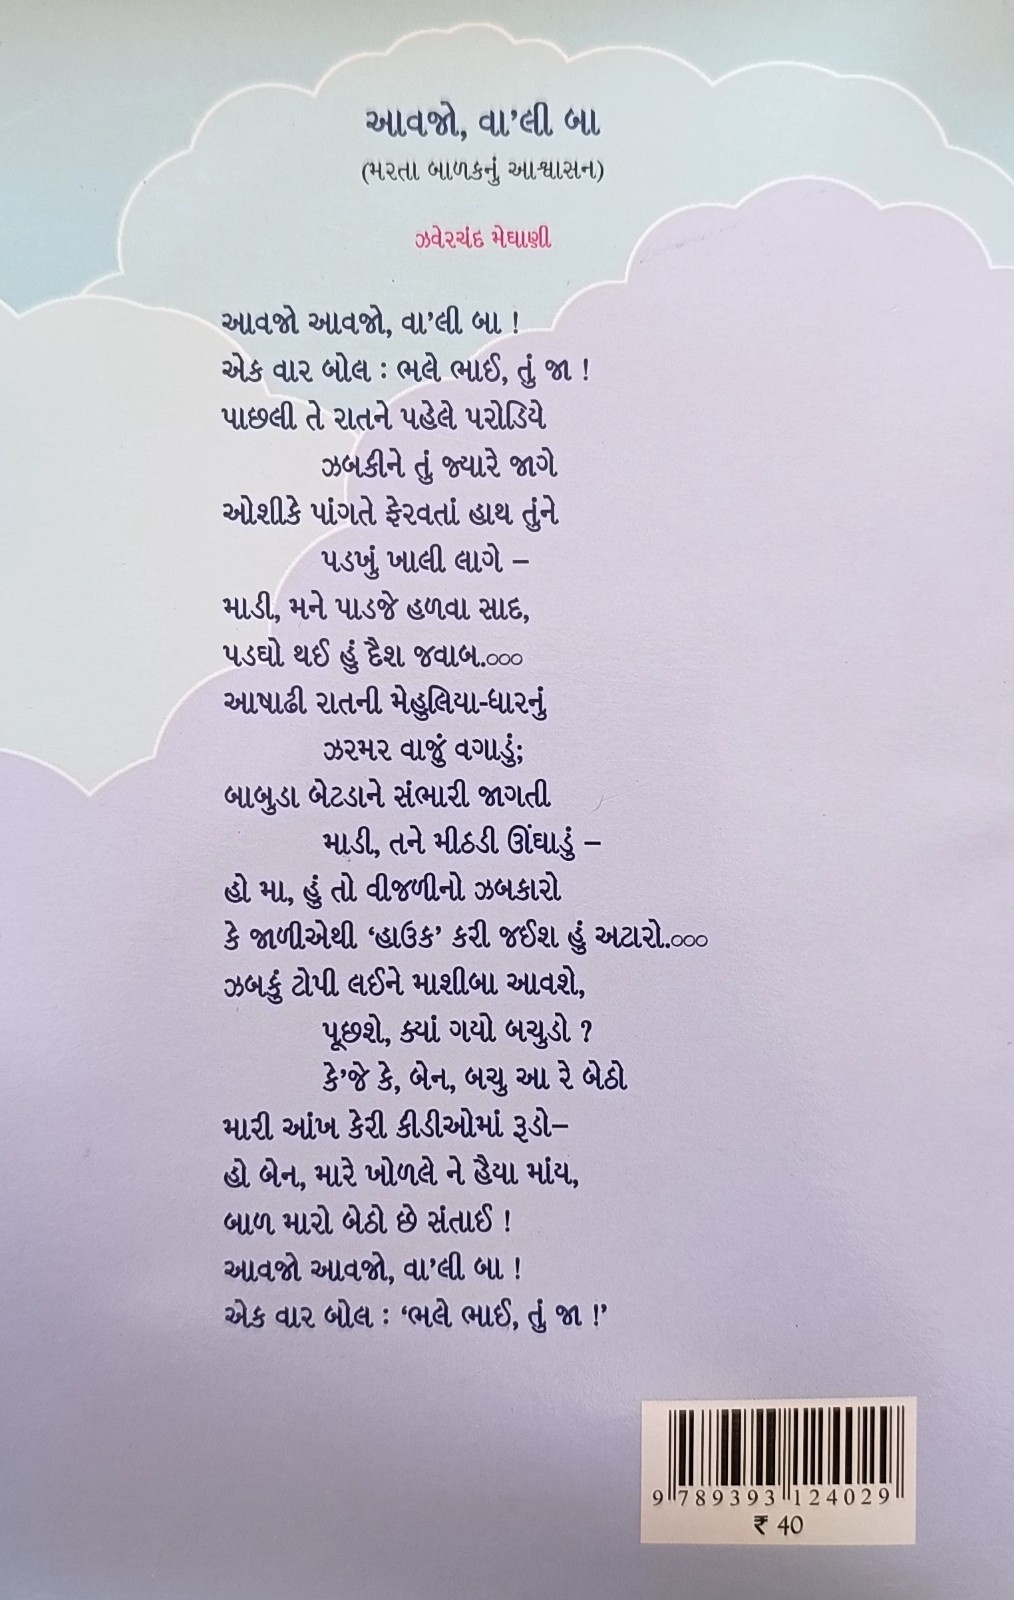 આવજો, વા’લી બા
(મરતા બાળકનું આશ્વાસન)
ઝવેરચંદ મેઘાણી
આવજો આવજો, વા’લી બા !
એક વાર બોલ : ભલે ભાઈ, તું જા !
પાછલી તે રાતને પહેલે પરોડિયે
ઝબકીને તું જ્યારે જાગે
ઓશીકે પાંગતે ફેરવતાં હાથ તુંને
પડખું ખાલી લાગે –
માડી, મને પાડજે હળવા સાદ,
પડઘો થઈ હું દૈશ જવાબ.૦૦૦
આષાઢી રાતની મેહુલિયા-ધારનું
ઝરમર વાજું વગાડું;
બાબુડા બેટડાને સંભારી જાગતી
માડી, તને મીઠડી ઊંઘાડું –
હો મા, હું તો વીજળીનો ઝબકારો
કે જાળીએથી ‘હાઉક’ કરી જઈશ હું અટારો.૦૦૦
ઝબકું ટોપી લઈને માશીબા આવશે,
પૂછશે, ક્યાં ગયો બચુડો ?
કે’જે કે, બેન, બચુ આ રે બેઠો
મારી આંખ કેરી કીડીઓમાં રૂડો–
હો બેન, મારે ખોળલે ને હૈયા માંય,
બાળ મારો બેઠો છે સંતાઈ !
આવજો આવજો, વા’લી બા !
એક વાર બોલ : ‘ભલે ભાઈ, તું જા !’
9 789393 124029
₹ 40